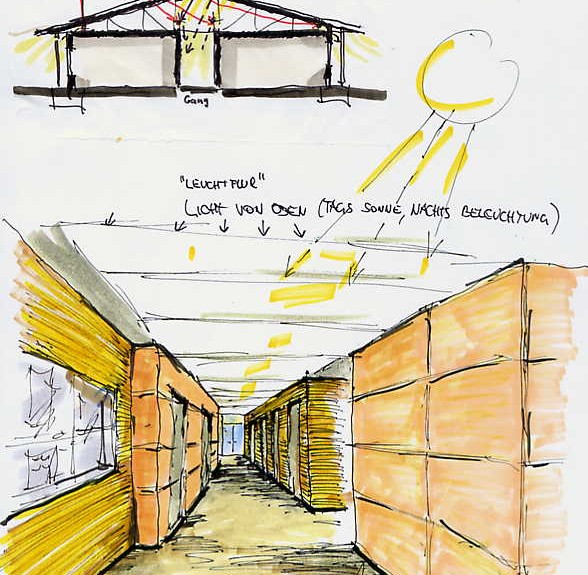 Gang
"LEUCHTFLUR"
LICHT VON OBEN (TAGS SONNE, NACHTS BELEUCHTUNG)